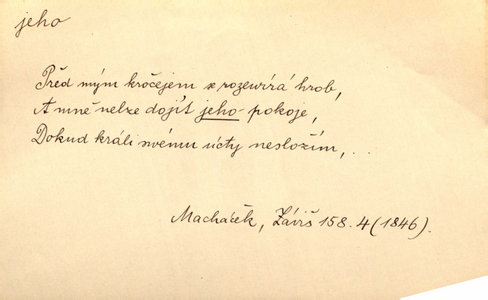 jeho
Před mým kročejem se rozewírá hrob,
A mně nelze dojít jeho pokoje,
Dokud králi svému účty nesložím, ...
Macháček, Záviš 158. 4 (1846).